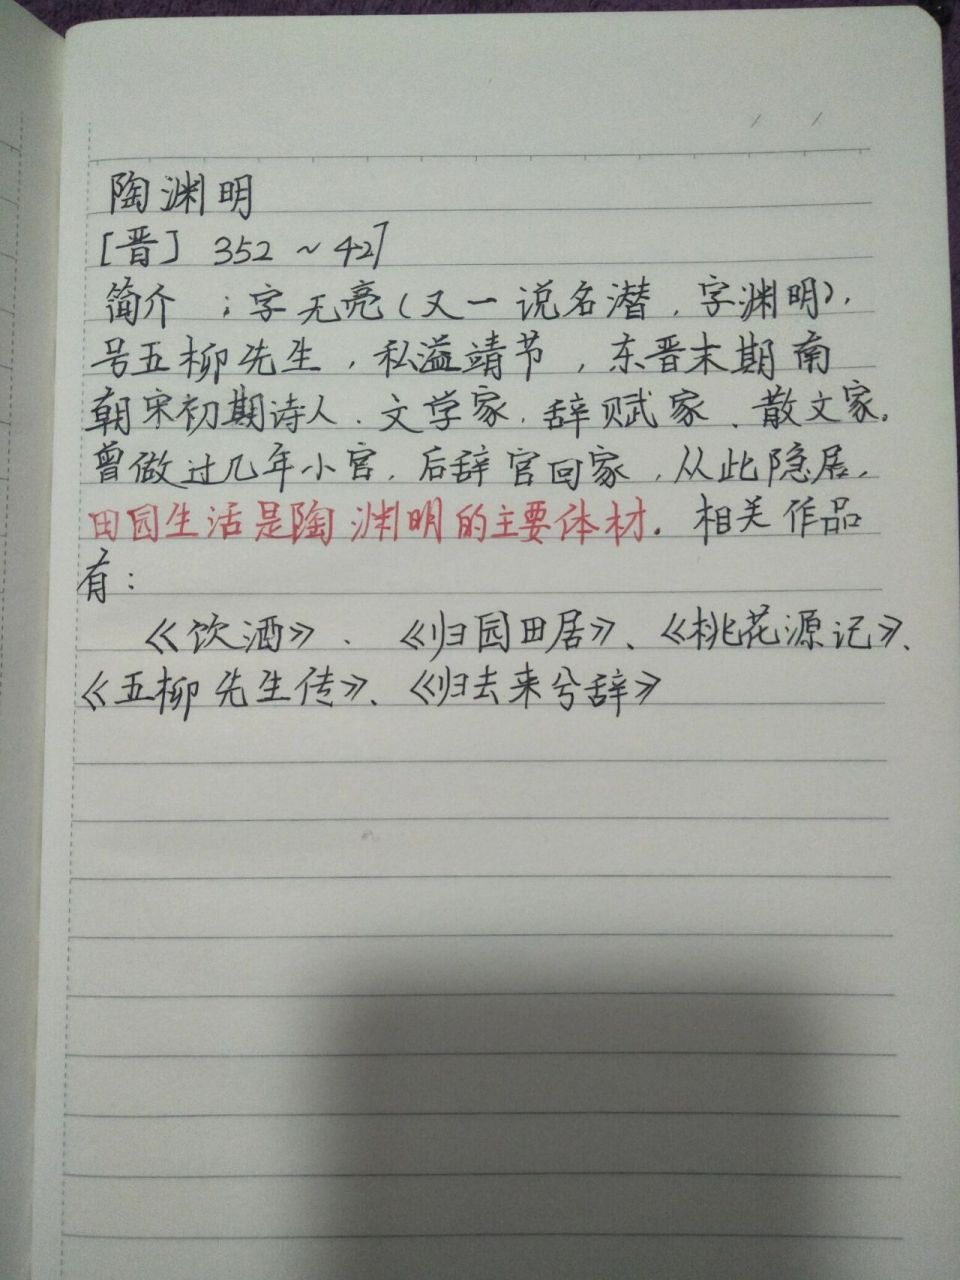 陶渊明
[晋] 352 ~ 427
简介 ；字无亮（又一说名潜，字渊明），
号五柳先生，私溢靖节，东晋末期南
朝宋初期诗人、文学家、辞赋家、散文家。
曾做过几年小官，后辞官回家，从此隐居，
田园生活是陶渊明的主要体材。相关作品
有：
《饮酒》、《归园田居》、《桃花源记》、
《五柳先生传》、《归去来兮辞》